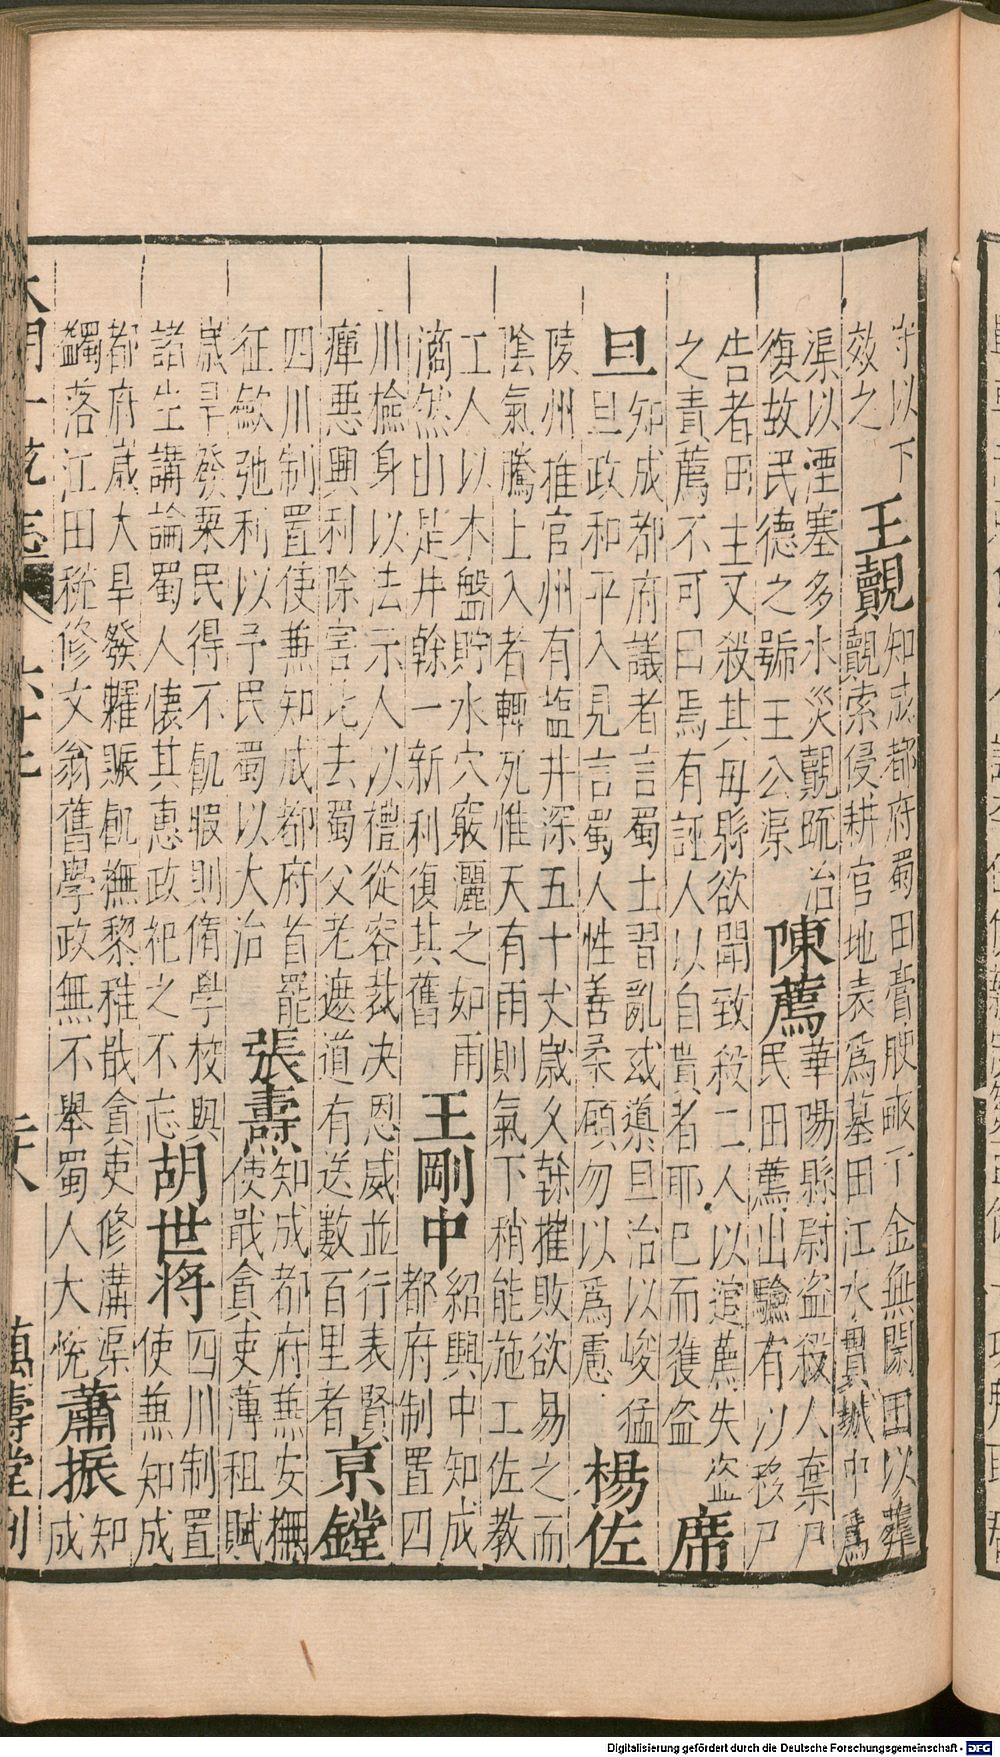 守以下
效之
王覿
知成都府蜀田膏腴畝千金無閑田以葬
覿索侵耕官地表爲墓田江水貫城中爲
渠以湮塞多水災覿疏治
復故民德之號王公渠
陳薦
華陽縣尉盜殺人棄尸
民田薦出驗有以移尸
告者田主又殺其母縣欲聞致殺二人以逭薦失盜
之責薦不可曰焉有誣人以自貰者耶已而獲盜
席
旦
知成都府議者言蜀土習亂或導旦治以峻猛
旦政和平入見言蜀人性善柔願勿以爲慮
楊佐
陵州推官州有塩井深五十丈歲久榦摧敗欲易之而
陰氣騰上入者輙死惟天有雨則氣下稍能施工佐教
工人以木盤貯水穴竅灑之如雨
滴然由是井榦一新利復其舊
王剛中
紹興中知成
都府制置四
川檢身以法示人以禮從容裁决恩威並行表賢
癉惡興利除害比去蜀父老遮道有送數百里者
京鏜
四川制置使兼知成都府首罷
征歛弛利以予民蜀以大治
張燾
知成都府兼安撫
使戢貪吏薄租賦
歲旱發粟民得不飢暇則脩學校與
諸生講論蜀人懷其惠政祀之不忘
胡世将
四川制置
使兼知成
都府歲大旱發糶賑飢撫黎雅戢貪吏修溝渠
蠲落江田稅修文翁舊學政無不舉蜀人大悅
蕭振
知
成
大明一統志 萬壽堂刊
Digitalisierung gefördert durch die Deutsche Forschungsgemeinschaft - DFG